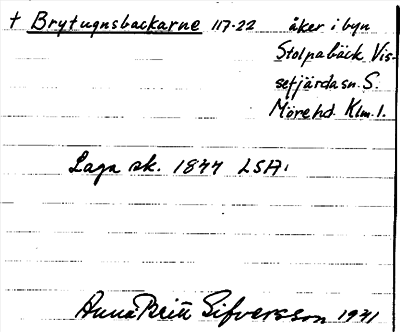 † Brytugnsbackarne 117.22 åker i byn
Stolpabäck Vis-
sefjärda sn. S.
Möre hd. Klm. l.
Laga sk. 1877 LSA.
Anna Britt Sifversson 1971